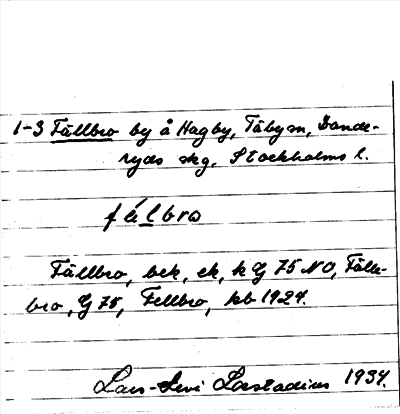 1-3 Fällbro by å Hagby, Täby sn, Dande-
ryds skg, Stockholms l.
fä́lbro
Fällbro, bek, ek, kG 75 NO, Fälle-
bro, G 75, Fellbro, kb 1924.
Lars-Levi Læstadius 1934.